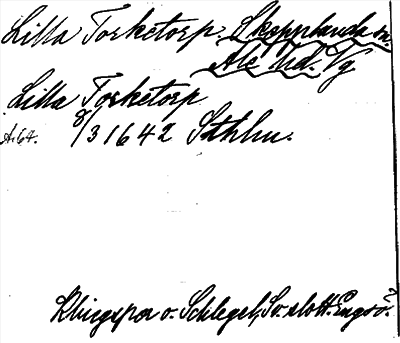 Lilla Torketorp. Skepplanda sn.
Ale hd. Vg
Lilla Torketorp
A.64. 8/3 1642 Sthlm.
Klingspor o. Schlegel, Sv. slott. Engsö.